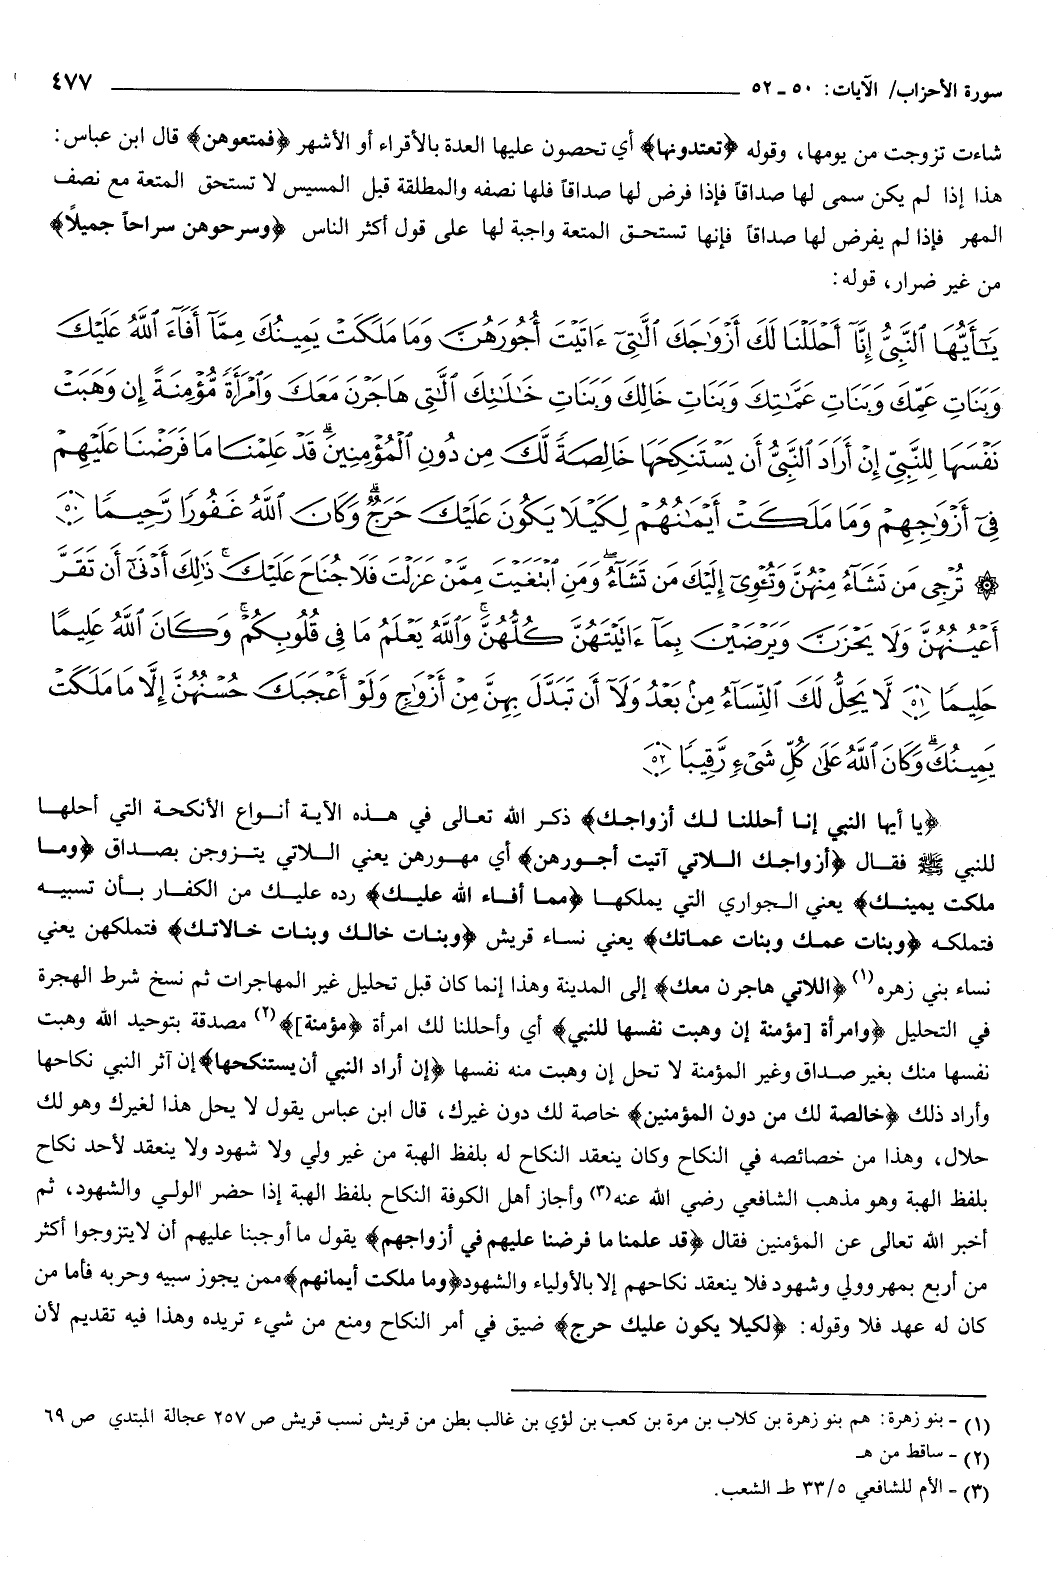 سورة الأحزاب/ الآيات: ٥٠ - ٥٢ ٤٧٧
شاءت تزوجت من يومها، وقوله ﴿تعتدونها﴾ أي تحصون عليها العدة بالأقراء أو الأشهر ﴿فمتعوهن﴾ قال ابن عباس:
هذا إذا لم يكن سمى لها صداقاً فإذا فرض لها صداقاً فلها نصفه والمطلقة قبل المسيس لا تستحق المتعة مع نصف
المهر فإذا لم يفرض لها صداقاً فإنها تستحق المتعة واجبة لها على قول أكثر الناس ﴿وسرحوهن سراحاً جميلاً﴾
من غير ضرار، قوله:
يَٰٓأَيُّهَا ٱلنَّبِىُّ إِنَّآ أَحْلَلْنَا لَكَ أَزْوَٰجَكَ ٱلَّٰتِىٓ ءَاتَيْتَ أُجُورَهُنَّ وَمَا مَلَكَتْ يَمِينُكَ مِمَّآ أَفَآءَ ٱللَّهُ عَلَيْكَ
وَبَنَاتِ عَمِّكَ وَبَنَاتِ عَمَّٰتِكَ وَبَنَاتِ خَالِكَ وَبَنَاتِ خَٰلَٰتِكَ ٱلَّٰتِى هَاجَرْنَ مَعَكَ وَٱمْرَأَةً مُّؤْمِنَةً إِن وَهَبَتْ
نَفْسَهَا لِلنَّبِىِّ إِنْ أَرَادَ ٱلنَّبِىُّ أَن يَسْتَنكِحَهَا خَالِصَةً لَّكَ مِن دُونِ ٱلْمُؤْمِنِينَۗ قَدْ عَلِمْنَا مَا فَرَضْنَا عَلَيْهِمْ
فِىٓ أَزْوَٰجِهِمْ وَمَا مَلَكَتْ أَيْمَٰنُهُمْ لِكَيْلَا يَكُونَ عَلَيْكَ حَرَجٌۗ وَكَانَ ٱللَّهُ غَفُورًا رَّحِيمًا ﴿٥٠﴾
۞ تُرْجِى مَن تَشَآءُ مِنْهُنَّ وَتُـْٔوِىٓ إِلَيْكَ مَن تَشَآءُۖ وَمَنِ ٱبْتَغَيْتَ مِمَّنْ عَزَلْتَ فَلَا جُنَاحَ عَلَيْكَۚ ذَٰلِكَ أَدْنَىٰٓ أَن تَقَرَّ
أَعْيُنُهُنَّ وَلَا يَحْزَنَّ وَيَرْضَيْنَ بِمَآ ءَاتَيْتَهُنَّ كُلُّهُنَّۚ وَٱللَّهُ يَعْلَمُ مَا فِى قُلُوبِكُمْۚ وَكَانَ ٱللَّهُ عَلِيمًا
حَلِيمًا ﴿٥١﴾ لَّا يَحِلُّ لَكَ ٱلنِّسَآءُ مِنۢ بَعْدُ وَلَآ أَن تَبَدَّلَ بِهِنَّ مِنْ أَزْوَٰجٍ وَلَوْ أَعْجَبَكَ حُسْنُهُنَّ إِلَّا مَا مَلَكَتْ
يَمِينُكَۗ وَكَانَ ٱللَّهُ عَلَىٰ كُلِّ شَىْءٍ رَّقِيبًا ﴿٥٢﴾
﴿يا أيها النبي إنا أحللنا لك أزواجك﴾ ذكر الله تعالى في هذه الآية أنواع الأنكحة التي أحلها
للنبي ﷺ فقال ﴿أزواجك اللاتي آتيت أجورهن﴾ أي مهورهن يعني اللاتي يتزوجن بصداق ﴿وما
ملكت يمينك﴾ يعني الجواري التي يملكها ﴿مما أفاء الله عليك﴾ رده عليك من الكفار بأن تسبيه
فتملكه ﴿وبنات عمك وبنات عماتك﴾ يعني نساء قريش ﴿وبنات خالك وبنات خالاتك﴾ فتملكهن يعني
نساء بني زهره(١) ﴿اللاتي هاجرن معك﴾ إلى المدينة وهذا إنما كان قبل تحليل غير المهاجرات ثم نسخ شرط الهجرة
في التحليل ﴿وامرأة [مؤمنة إن وهبت نفسها للنبي﴾ أي وأحللنا لك امرأة ﴿مؤمنة]﴾(٢) مصدقة بتوحيد الله وهبت
نفسها منك بغير صداق وغير المؤمنة لا تحل إن وهبت منه نفسها ﴿إن أراد النبي أن يستنكحها﴾ إن آثر النبي نكاحها
وأراد ذلك ﴿خالصة لك من دون المؤمنين﴾ خاصة لك دون غيرك، قال ابن عباس يقول لا يحل هذا لغيرك وهو لك
حلال، وهذا من خصائصه في النكاح وكان ينعقد النكاح له بلفظ الهبة من غير ولي ولا شهود ولا ينعقد لأحد نكاح
بلفظ الهبة وهو مذهب الشافعي رضي الله عنه(٣) وأجاز أهل الكوفة النكاح بلفظ الهبة إذا حضر الولي والشهود، ثم
أخبر الله تعالى عن المؤمنين فقال ﴿قد علمنا ما فرضنا عليهم في أزواجهم﴾ يقول ما أوجبنا عليهم أن لايتزوجوا أكثر
من أربع بمهر وولي وشهود فلا ينعقد نكاحهم إلا بالأولياء والشهود﴿وما ملكت أيمانهم﴾ممن يجوز سبيه وحربه فأما من
كان له عهد فلا وقوله: ﴿لكيلا يكون عليك حرج﴾ ضيق في أمر النكاح ومنع من شيء تريده وهذا فيه تقديم لأن
(١) - بنو زهرة: هم بنو زهرة بن كلاب بن مرة بن كعب بن لؤي بن غالب بطن من قريش نسب قريش ص ٢٥٧ عجالة المبتدي ص ٦٩
(٢) - ساقط من هـ
(٣) - الأم للشافعي ٣٣/٥ طـ الشعب.